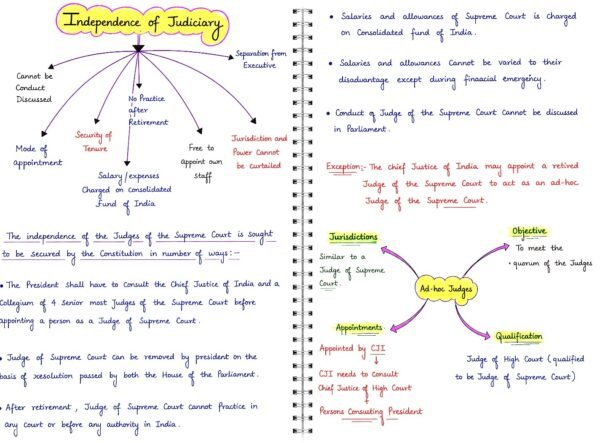 Independence of Judiciary
Separation from
Executive
Cannot be
Conduct
Discussed
No Practice
after
Retirement
Mode of
appointment
Security of
Tenure
Salary/expenses
Charged on consolidated
Fund of India
Free to
appoint own
staff
Jurisdiction and
Power Cannot
be curtailed
The independence of the Judges of the Supreme Court is sought
to be secured by the Constitution in number of ways:-
• The President shall have to Consult the Chief Justice of India and a
Collegium of 4 Senior most Judges of the Supreme Court before
appointing a person as a Judge of Supreme Court.
• Judge of Supreme Court can be removed by president on the
basis of resolution passed by both the House of the Parliament.
• After retirement, Judge of Supreme Court cannot Practice in
any court or before any authority in India.
• Salaries and allowances of Supreme Court is charged
on Consolidated fund of India.
• Salaries and allowances Cannot be varied to their
disadvantage except during finaacial emergency.
• Conduct of Judge of the Supreme Court cannot be discussed
in Parliament.
Exception:- The Chief Justice of India may appoint a retired
Judge of the Supreme Court to act as an ad-hoc
Judge of the Supreme Court.
Jurisdictions
Similar to a
Judge of Supreme
Court.
Objective
To meet the
quorum of the Judges
Ad-hoc Judges
Appointments
Appointed by CJI
CJI needs to Consult
Chief Justice of High Court
+
Persons Consulting President
Qualification
Judge of High Court (qualified
to be Judge of Supreme Court)